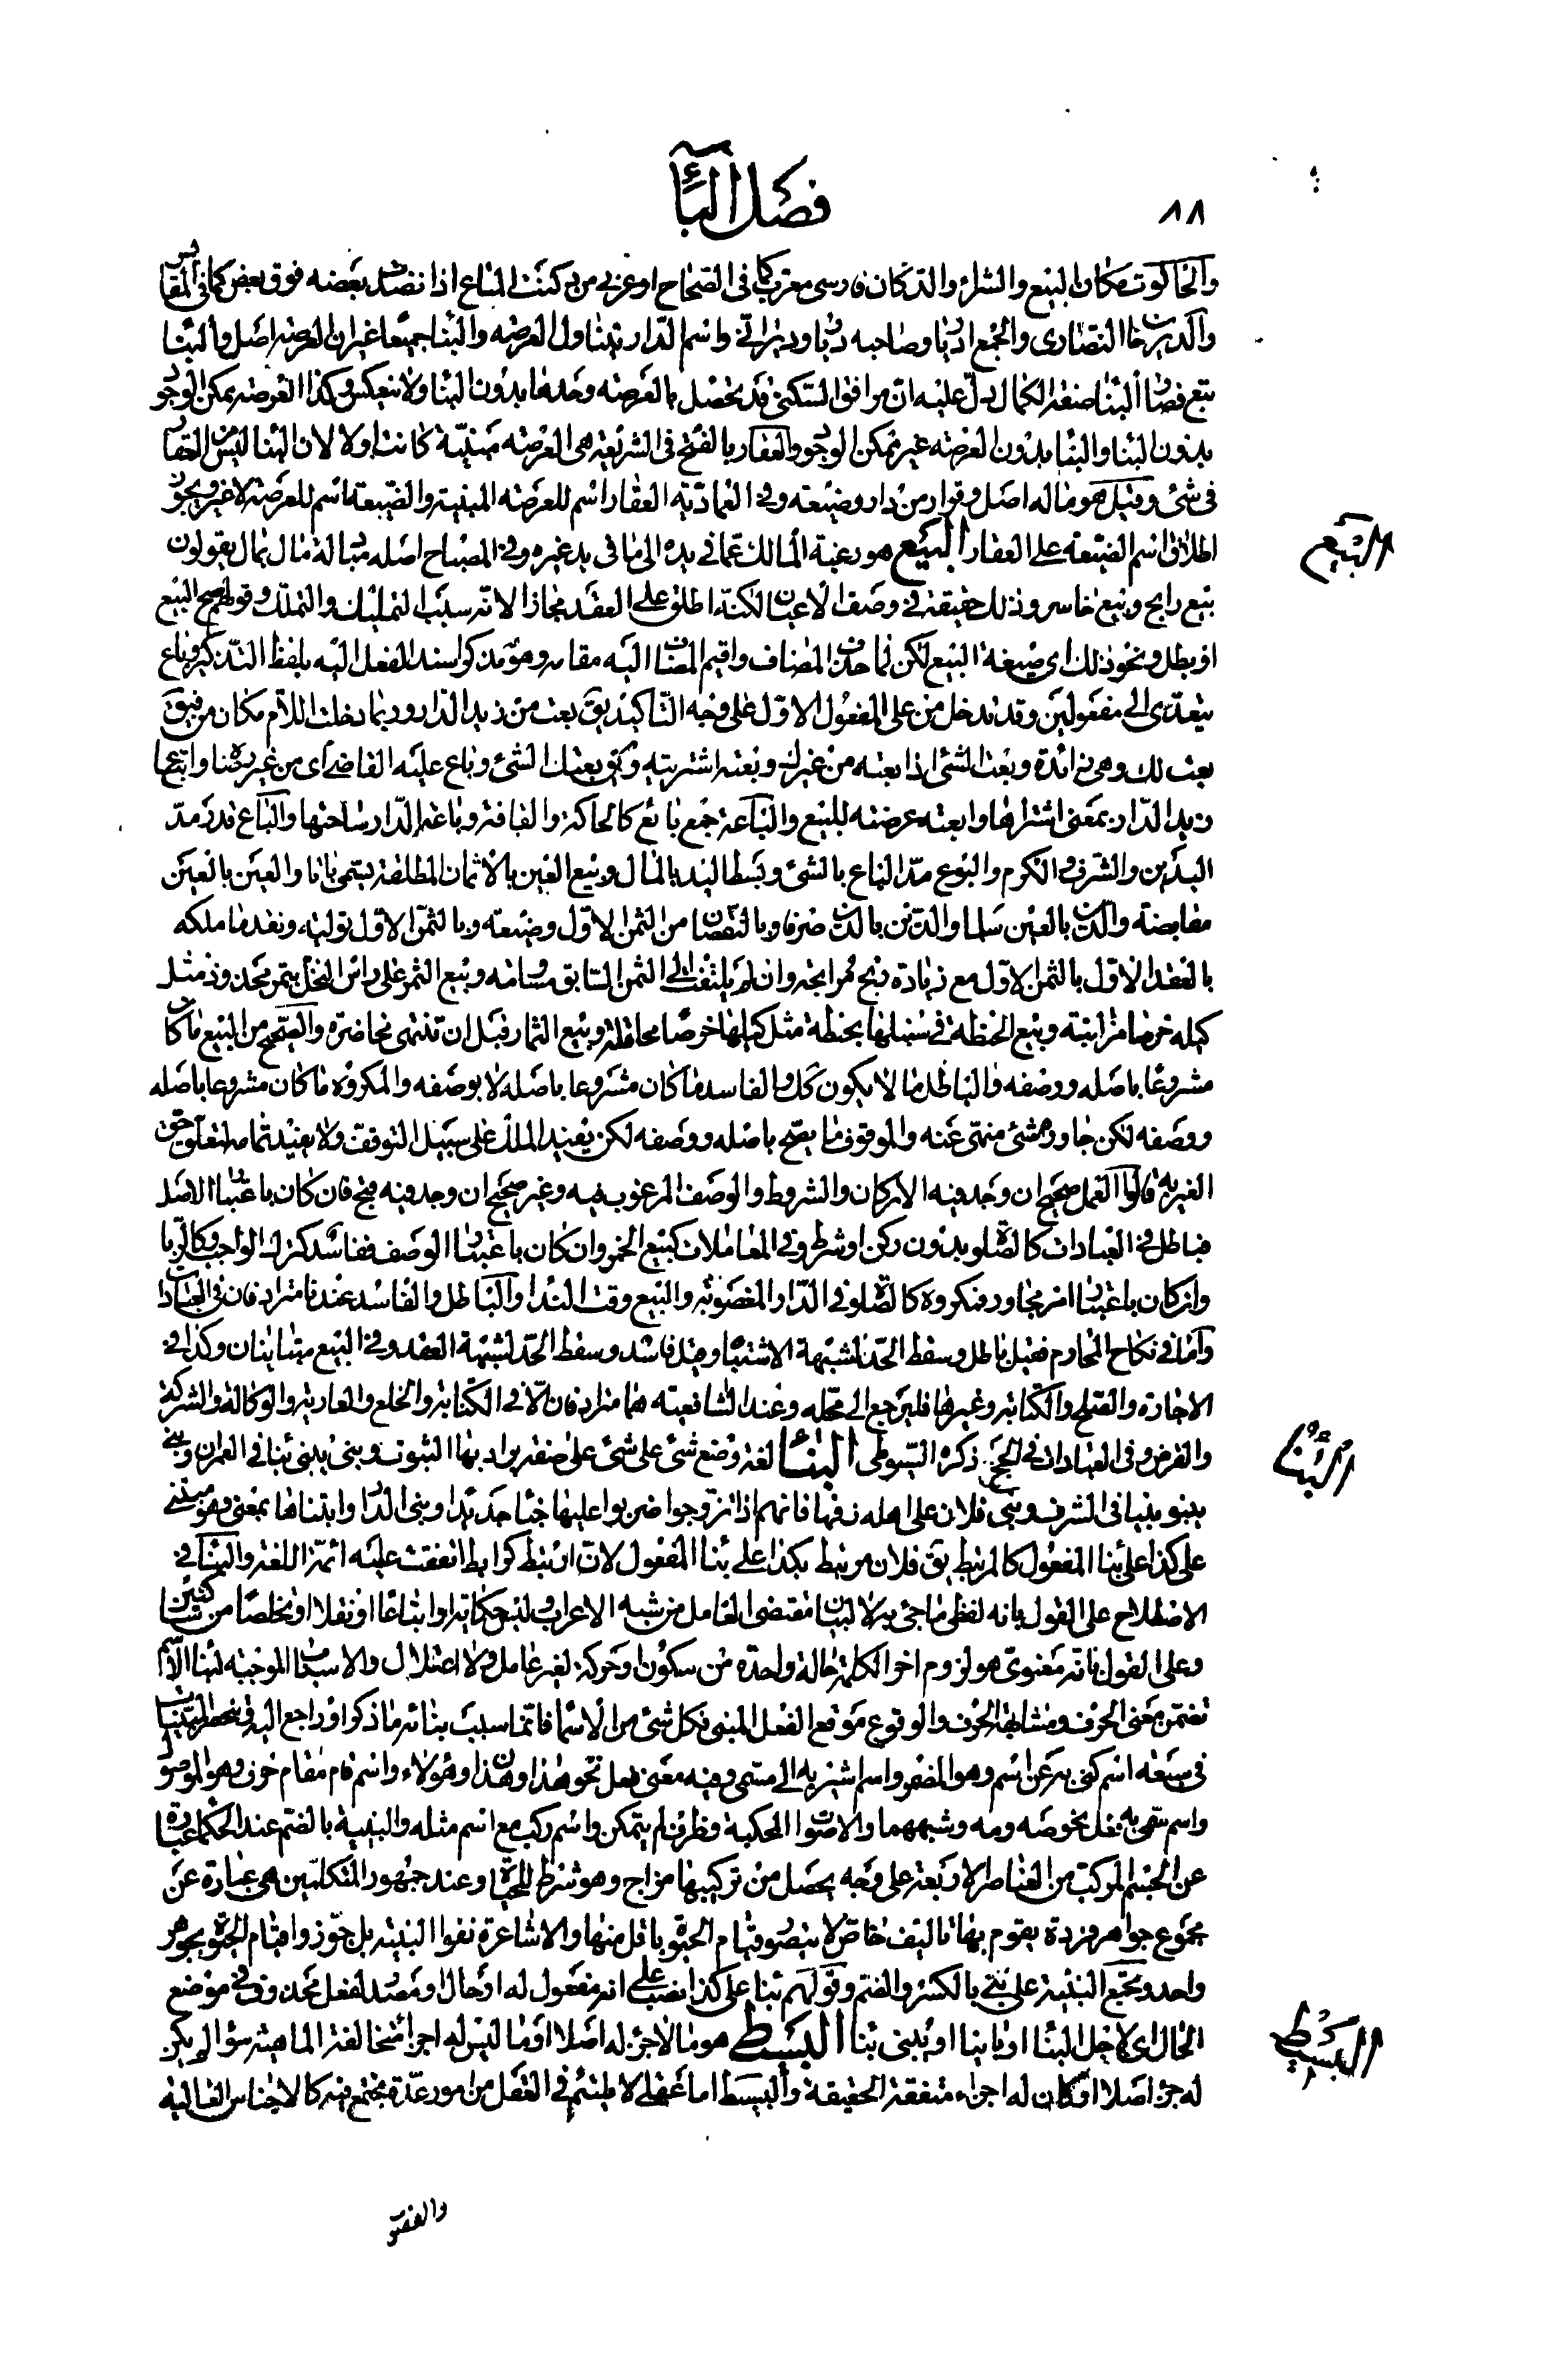 ٨٨
فصل البآء
والحانوت مكان البيع والشراء والدكان فارسى معرب كما فى الصحاح او عربى من دكنت المتاع اذا نضدت بعضه فوق بعض كما فى المقاييس
والدير خان النصارى والجمع اديار وصاحبه ديار وديرانى واسم الدار يتناول العرصه والبنا جميعا غير ان العرصه اصل والبنا
تبع فصار البنا صفة الكمال يدل عليه ان مرافق السكنى قد تحصل بالعرصه وحدها بدون البنا ولا ينعكس وكذا العرصه ممكن الوجود
بدون البنا والبنا بدون العرصه غير ممكن الوجود والعقار بالفتح فى الشريعه هى العرصه مبنيّة كانت اولا لان البنا ليس من العقار
فى شئ وقيل هو ما له اصل وقرار من دار وضيعه وفى العمادية العقار اسم للعرصه المبنيه والضيعه اسم للعرصه لا غير ويجوز
اطلاق اسم الضيعه على العقار البيع هو رغبة المالك عما فى يده الى ما فى يد غيره وفى المصباح اصله مبادلة مال بمال يقولون
بيع رابح وبيع خاسر وذلك حقيقة فى وصف الاعيان لكنه اطلق على العقد مجازا لانه سبب التمليك والتملك وقولهم صح البيع
او بطل ونحو ذلك اى صيغة البيع لكن لما حذف المضاف واقيم المضاف اليه مقامه وهو مذكر اسند الفعل اليه بلفظ التذكير وباع
يتعدى الى مفعولين وقد تدخل من على المفعول الاول على وجه التاكيد يق بعت من زيد الدار وربما دخلت اللام مكان من فيق
بعت لك وهى زائدة وبعت الشئ اذا بعته من غيرك وبعته اشتريته ويق بعتك الشئ وباع عليه القاضى اى من غير رضا وابتاع
زيد الدار بمعنى اشتراها وابعته عرضته للبيع والباعة جمع بائع كالحاكة والقافة وباعة الدار ساحتها والباع قدر مد
اليدين والشرف والكرم والبوع مد الباع بالشئ وبسط اليد بالمال وبيع العين بالاثمان المطلقة يسمى باتا والعين بالعين
مقايضة والدين بالعين سلما والدين بالدين صرفا وبالنقصان من الثمن الاول وضيعه وبالثمن الاول توليه ونقد ما ملكه
بالعقد الاول بالثمن الاول مع زيادة ربح مرابحه وان لم يلتفت الى الثمن السابق مساومه وبيع الثمر على راس النخل بتمر مجذوذ مثل
كيله خرصا مزابنة وبيع الحنطة فى سنبلها بحنطة مثل كيلها خرصا محاقلة وبيع الثمار قبل ان تنتهى مخاضرة والصحيح من البيع ما كان
مشروعا باصله ووصفه والباطل ما لا يكون كك والفاسد ما كان مشروعا باصله لا بوصفه والمكروه ما كان مشروعا باصله
ووصفه لكن جاوره شئ منهى عنه والموقوف ما يصح باصله ووصفه لكن يفيد الملك على سبيل التوقف ولا يفيد تمامه لتعلق حق
الغير به قالوا العمل صحيح ان وجد فيه الاركان والشروط والوصف المرغوب فيه وغير صحيح ان وجد فيه قبح فان كان باعتبار الاصل
فباطل فى العبادات كالصلوة بدون ركن او شرط وفى المعاملات كبيع الخمر وان كان باعتبار الوصف ففاسد كترك الواجب وكالربا
وان كان باعتبار امر مجاور فمكروه كالصلوة فى الدار المغصوبه والبيع وقت الندا والباطل والفاسد عندنا مترادفان فى العبادات
واما فى نكاح المحارم فقيل باطل وسقط الحد لشبهة الاشتباه وقيل فاسد وسقط الحد لشبهة العقد وفى البيع متباينان وكذا فى
الاجارة والصلح والكتابه وغيرها فليرجع الى محله وعند الشافعيه هما مترادفان الا فى الكتابه والخلع والعاريه والوكالة والشركة
والقرض وفى العبادات فى الحج ذكره السيوطى البناء لغة وضع شئ على شئ على صفة يراد بها الثبوت وبنى يبنى بنا فى العمران وبنى
يبنو بنيا فى الشرف وبنى فلان على اهله زفها فانهم اذا تزوجوا ضربوا عليها خبا جديدا وبنى الدار وابتناها بمعنى وهو مبتنى
على كذا على بنا المفعول كالمرتبط يق فلان مرتبط بكذا على بنا المفعول لان ارتبط كرابط اتفقت عليه ائمة اللغة والبنا فى
الاصطلاح على القول بانه لفظى ما جئ به لا لبيان مقتضى العامل من شبه الاعراب وليس حكاية او اتباعا او نقلا او تخلصا من سكونين
وعلى القول بانه معنوى هو لزوم اخر الكلمة حالة واحدة من سكون او حركة لغير عامل ولا اعتلال والاسباب الموجبه لبنا الاسم
تضمن معنى الحرف ومشابهة الحرف والوقوع موقع الفعل المبنى فكل شئ من الاسما فانما سبب بنائه ما ذكر او راجع اليه وتنحصر المبنيات
فى سبعه اسم كنى به عن اسم وهو المضمر واسم اشير به الى مسمى وفيه معنى فعل نحو هذا وهذان وهؤلاء واسم قام مقام حرف وهو الموصول
واسم سمى به فعل نحو صه ومه وشبههما والاصوات المحكية وظرف لم يتمكن واسم ركب مع اسم مثله والبنية بالضم عند الحكما عبارة
عن الجسم المركب من العناصر الاربعة على وجه يحصل من تركيبها مزاج وهو شرط للحياة وعند جمهور المتكلمين هى عبارة عن
مجموع جواهر فردة يقوم بها تاليف خاص لا يتصور قيام الحيوة باقل منها والاشاعرة نفوا البنيه بل جوزوا قيام الحيوة بجوهر
واحد وتجمع البنيه على بنى بالكسر والضم وقولهم بنا على كذا نصب على انه مفعول له او حال او مصدر لفعل محذوف فى موضع
الحال اى لاجل البنا او بانيا او يبنى بنا البسيط هو ما لا جزء له اصلا او ما ليس له اجزا متخالفة الماهيه سواء لم يكن
له جزء اصلا او كان له اجزاء متفقة الحقيقة والبسيط اما عقلى لا يلتئم فى العقل من امور عدة تجتمع فيه كالاجناس العاليه
البيع
البناء
البسيط